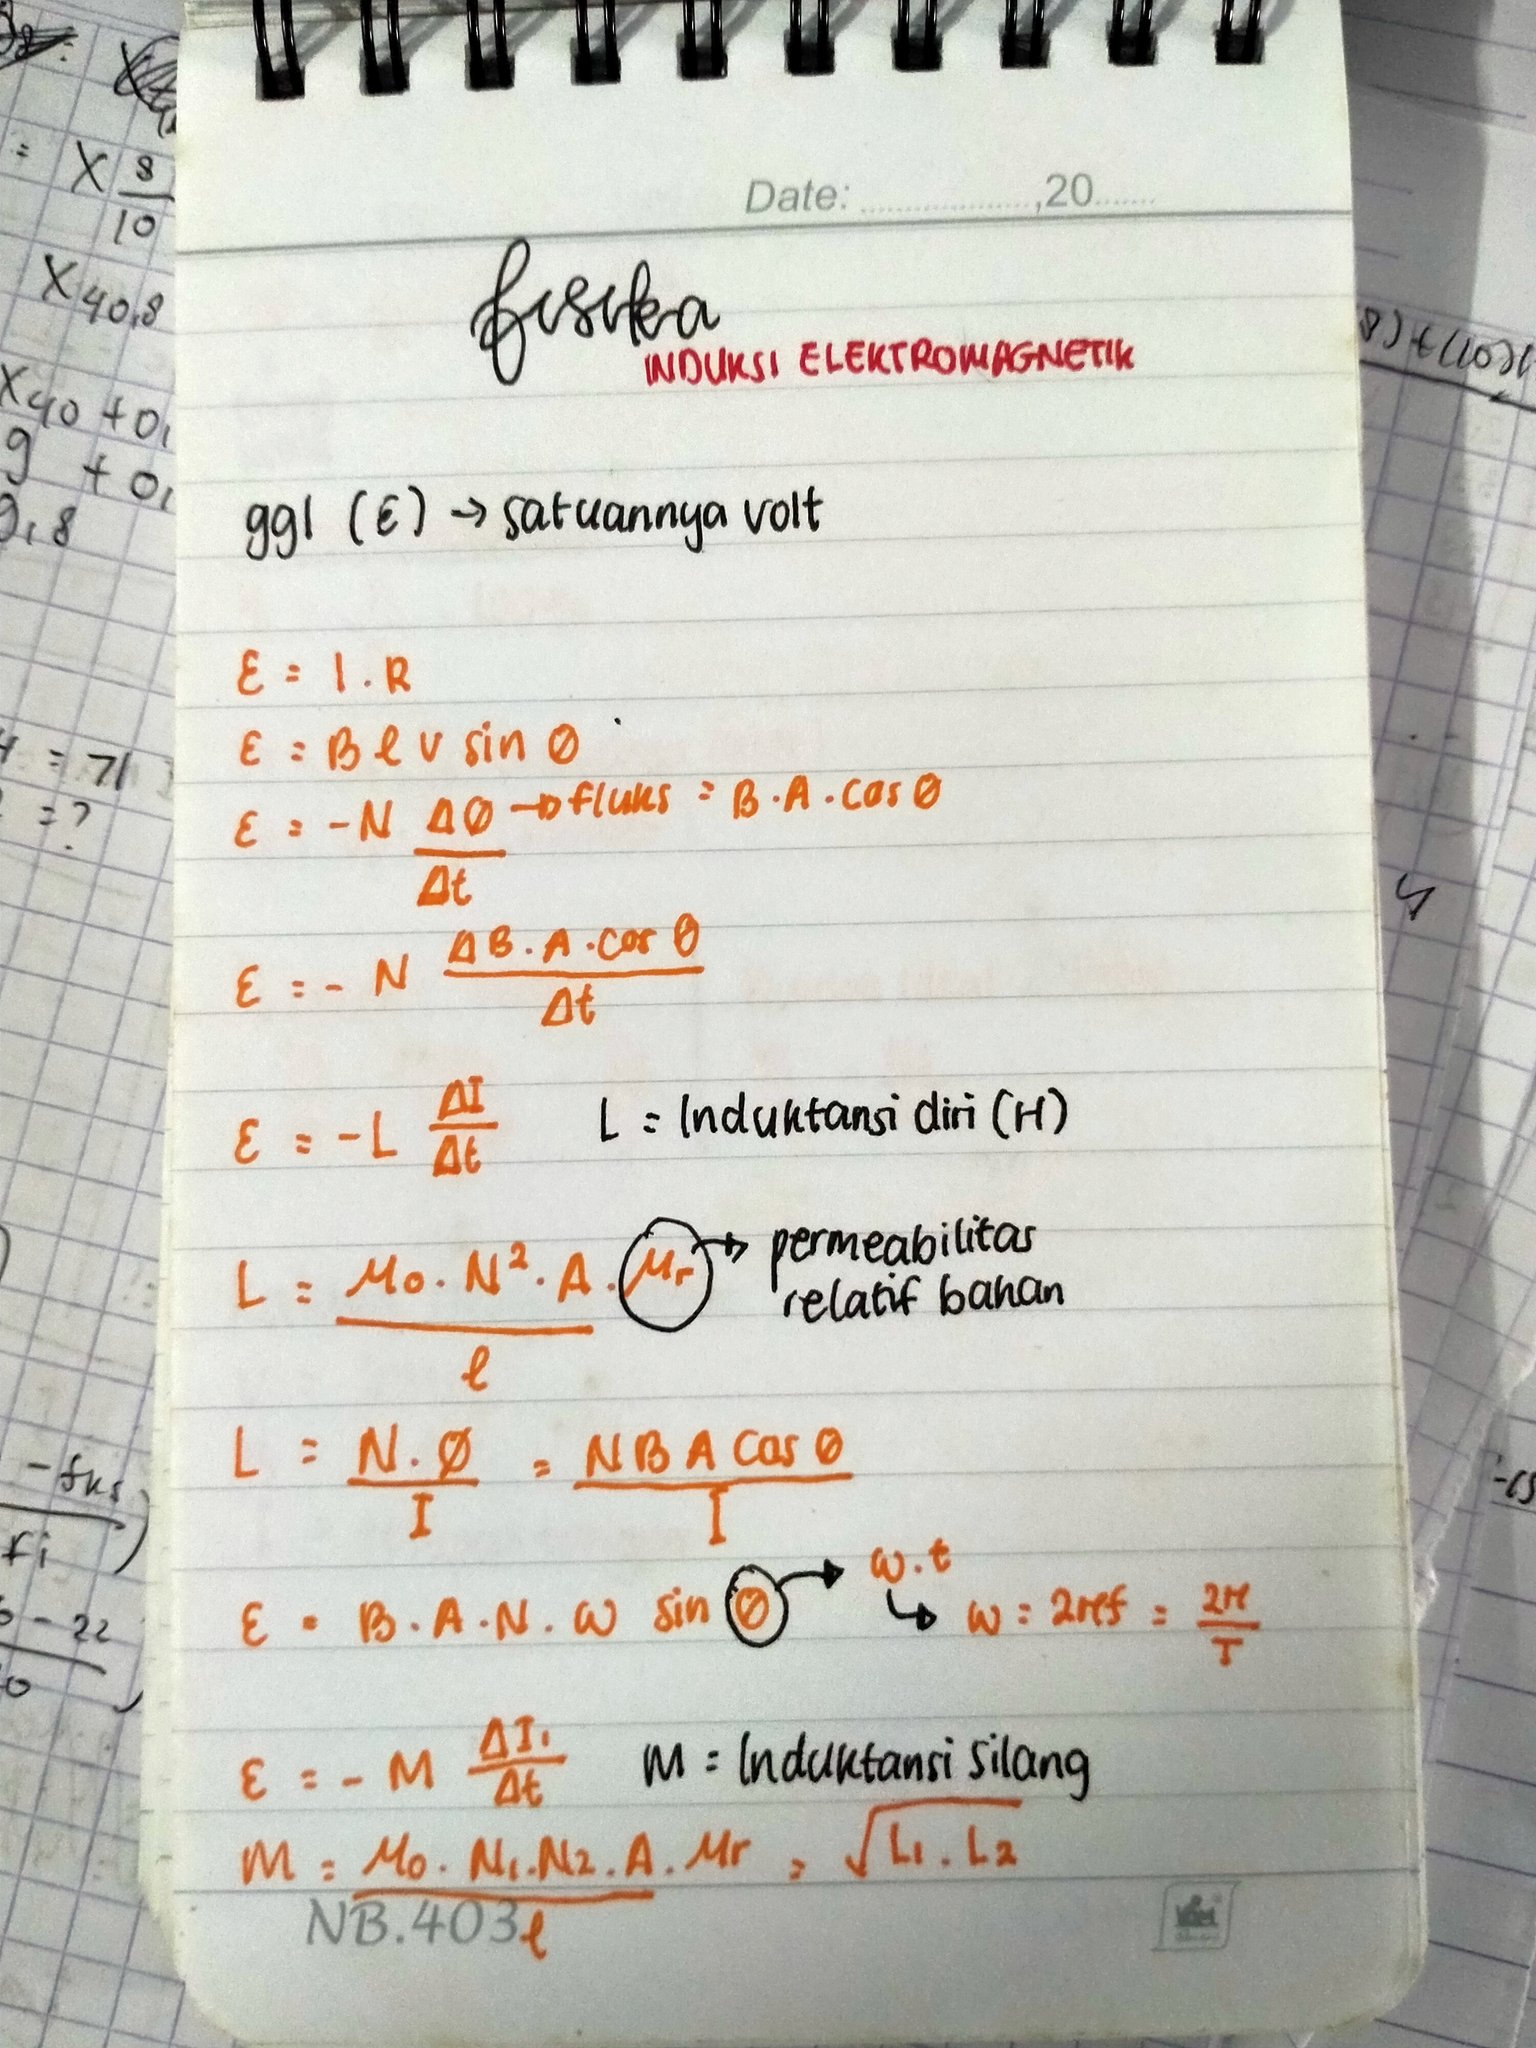 Date: ..................,20.......
fisika
INDUKSI ELEKTROMAGNETIK
ggl (ε) → satuannya volt
ε = I . R
ε = B ℓ v sin θ
ε = -N ΔØ/Δt → fluks = B . A . cos θ
ε = - N ΔB . A . cos θ/Δt
ε = -L ΔI/Δt L = Induktansi diri (H)
L = μ0 . N² . A/ℓ . μr → permeabilitas
relatif bahan
L = N . Ø/I = N B A cos θ/I
ε = B . A . N . ω sin θ → ω . t
↳ ω = 2πf = 2π/T
ε = - M ΔI1/Δt M = Induktansi silang
M = μ0 . N1 . N2 . A/ℓ . μr = √L1 . L2
NB.403
X 8/10
X40,8
X40 + 0,
9 + 0,
9,8
= 71
= ?